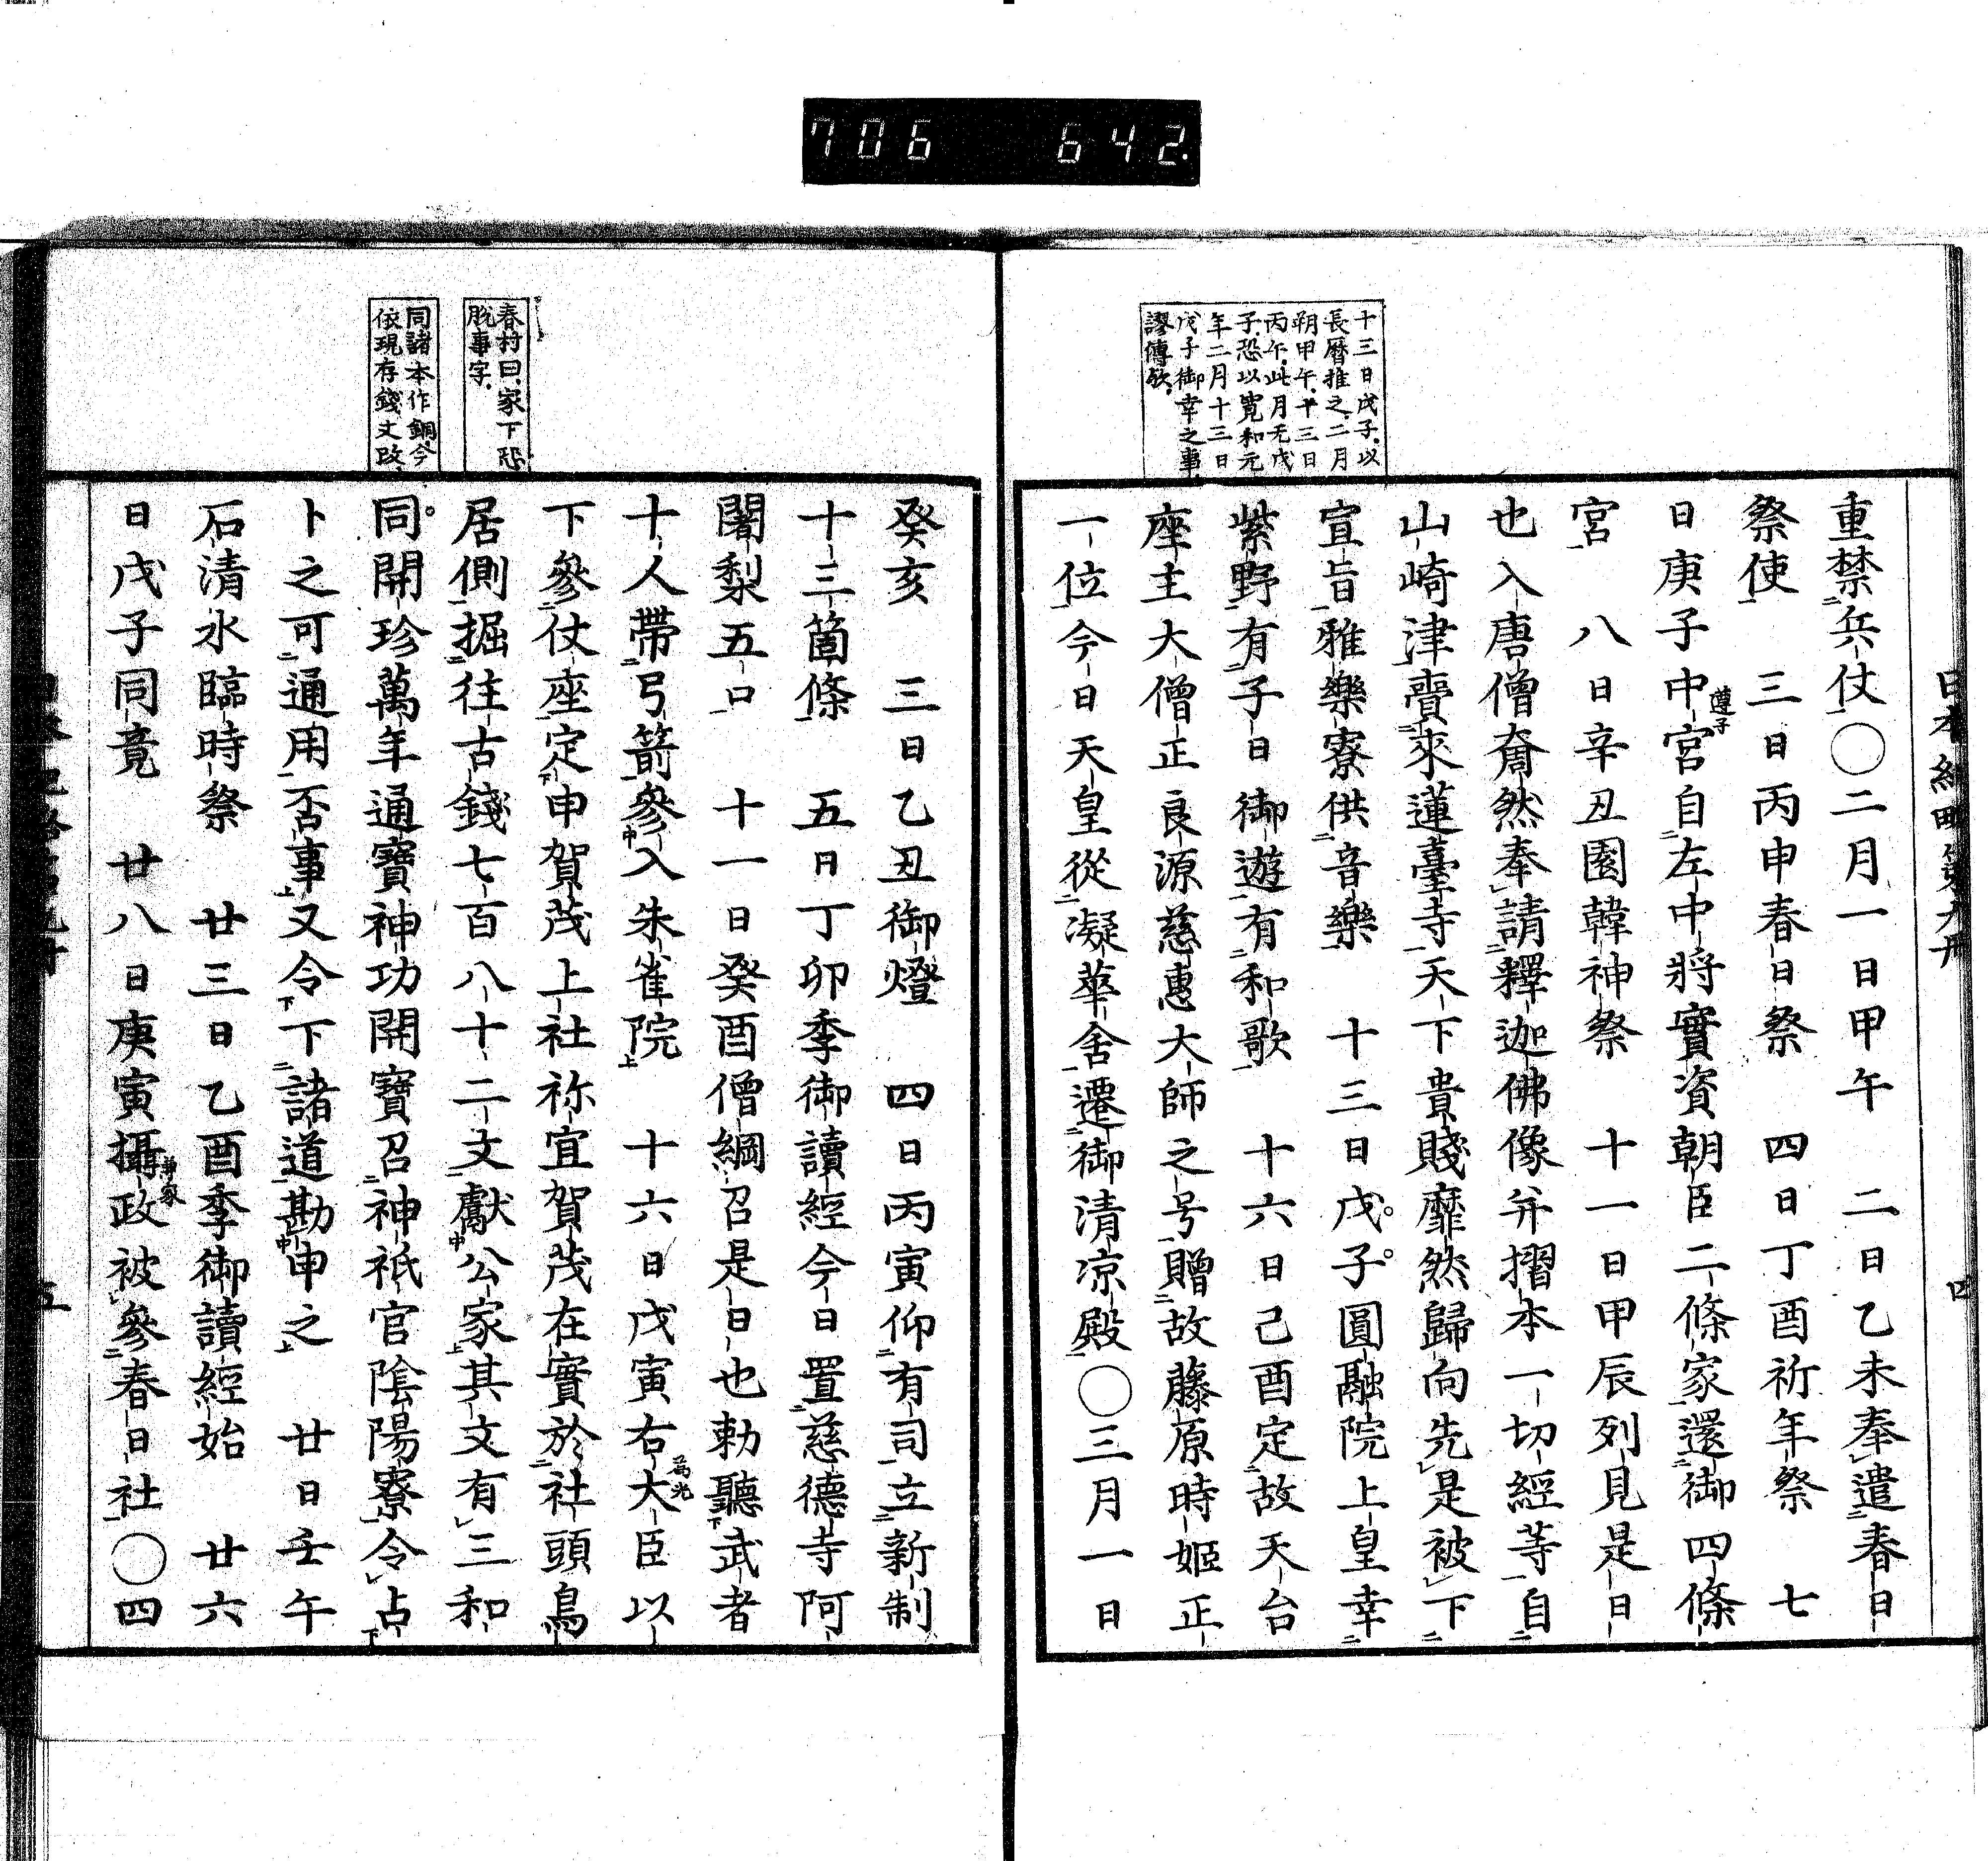 706 642.
十三日戊子以
長曆推之二月
朔甲午十三日
丙午此月无戊
子恐以寬和元
年二月十三日
戊子御幸之事
謬傳欤
重禁兵仗〇二月一日甲午 二日乙未奉遣春日
祭使 三日丙申春日祭 四日丁酉祈年祭 七
日庚子中宮遵子自左中將實資朝臣二條家還御四條
宮 八日辛丑園韓神祭 十一日甲辰列見是日
也入唐僧奝然奉請釋迦佛像并摺本一切經等自
山崎津賷來蓮臺寺天下貴賤靡然歸向先是被下
宣旨雅樂寮供音樂 十三日戊子圓融院上皇幸
紫野有子日御遊有和歌 十六日己酉定故天台
座主大僧正良源慈惠大師之号贈故藤原時姬正
一位今日天皇從凝華舍遷御清凉殿〇三月一日
四
春村曰家下恐
脫事字
同諸本作銅今
依現存錢文改
癸亥 三日乙丑御燈 四日丙寅仰有司立新制
十三箇條 五日丁卯季御讀經今日置慈德寺阿
闍梨五口 十一日癸酉僧綱召是日也勅聽武者
十人帶弓箭參入朱雀院 十六日戊寅右大臣為光以
下參仗座定申賀茂上社祢宜賀茂在實於社頭鳥
居側掘往古錢七百八十二文獻公家其文有三和
同開珍萬年通寶神功開寶召神祇官陰陽寮令占
卜之可通用否事又令下諸道勘申之 廿日壬午
石清水臨時祭 廿三日乙酉季御讀經始 廿六
日戊子同竟 廿八日庚寅攝政兼家被參春日社〇四
五